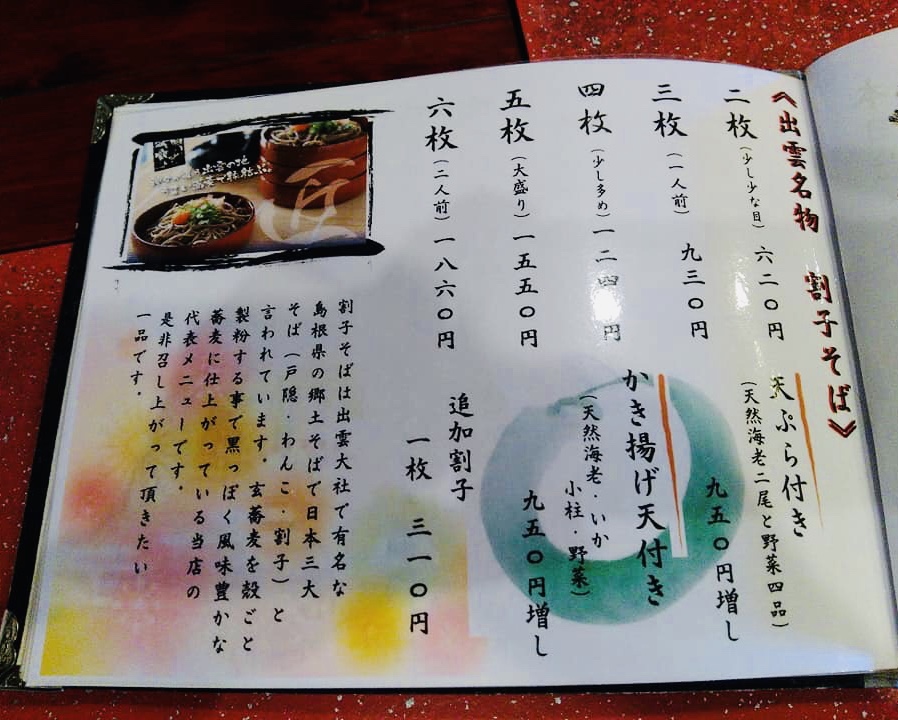 《出雲名物 割子そば》
二枚（少し少な目）六二〇円
三枚（一人前）九三〇円
四枚（少し多め）一二四〇円
五枚（大盛り）一五五〇円
六枚（二人前）一八六〇円
天ぷら付き
（天然海老二尾と野菜四品）
九五〇円増し
かき揚げ天付き
（天然海老・いか
小柱・野菜）
九五〇円増し
追加割子
一枚 三一〇円
匠
割子そばは出雲大社で有名な
島根県の郷土そばで日本三大
そば（戸隠・わんこ・割子）と
言われています。玄蕎麦を殻ごと
製粉する事で黒っぽく風味豊かな
蕎麦に仕上がっている当店の
代表メニューです。
是非召し上がって頂きたい
一品です。